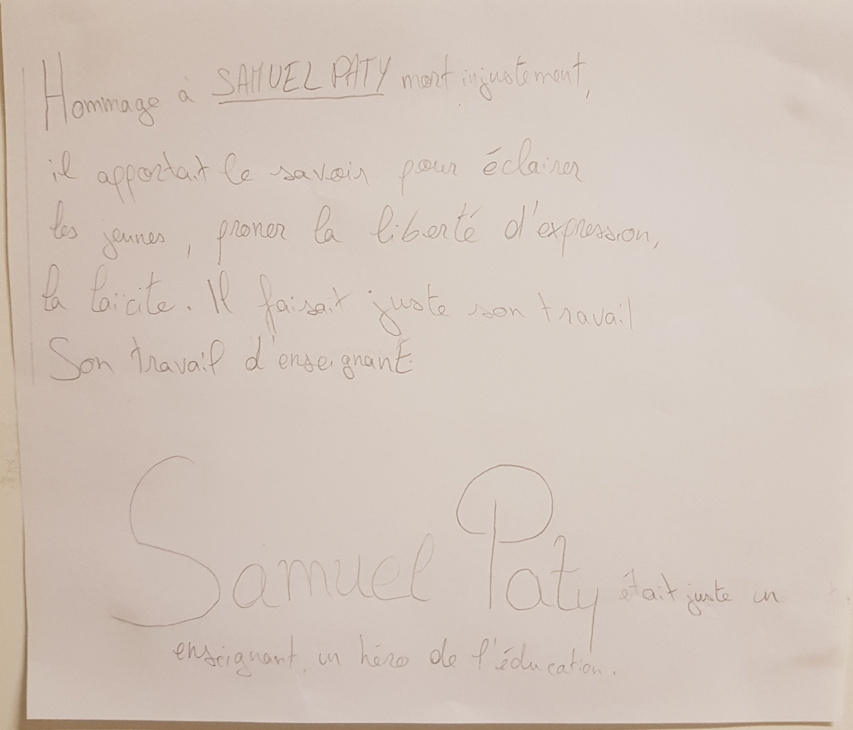 Hommage à SAMUEL PATY mort injustement,
il apportait le savoir pour éclairer
les jeunes, proner la liberté d'expression,
la laïcite. Il faisait juste son travail
Son travail d'enseignant
Samuel Paty était juste un
enseignant, un héro de l'éducation.